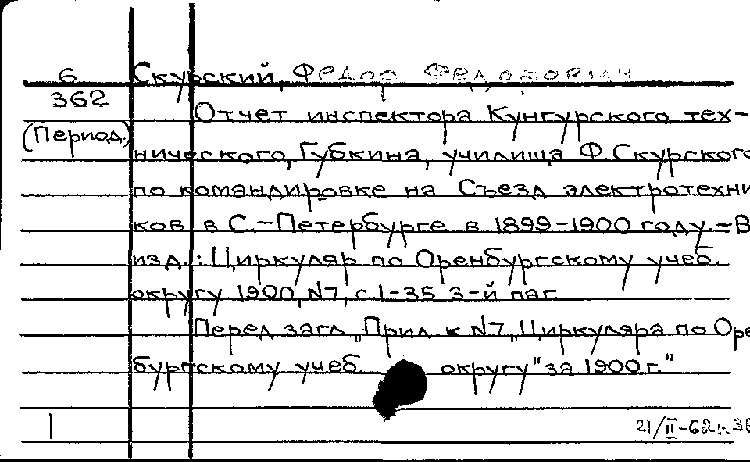 6 Скурский, Федор Федорович
362 Отчет инспектора Кунгурского тех-
(Период.) нического, Губкина, училища Ф. Скурского
по командировке на Съезд электротехни
ков в С.-Петербурге в 1899-1900 году. - В
изд.: Циркуляр по Оренбургскому учеб.
округу 1900, №7, с. 1-35 3-й паг
Перед загл. "Прил. к №7 "Циркуляра по Оре
бургскому учеб. округу" за 1900 г."
21/II-62 г.